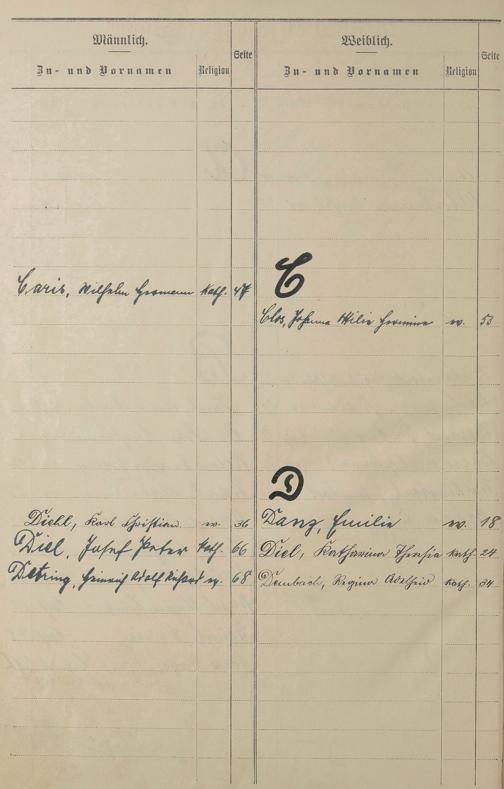 Männlich.
Zu- und Vornamen Religion Seite
Weiblich.
Zu- und Vornamen Religion Seite
C
Caris, Wilhelm Hermann kath. 47
Clos, Johanna Hermine ev. 53
D
Diehl, Karl Christian ev. 36
Diel, Josef Peter kath. 66
Detring, Heinrich Adolf Richard ev. 68
Danz, Emilie ev. 18
Diel, Katharina Theresia kath. 24
Dembach, Regina Adelheid kath. 34